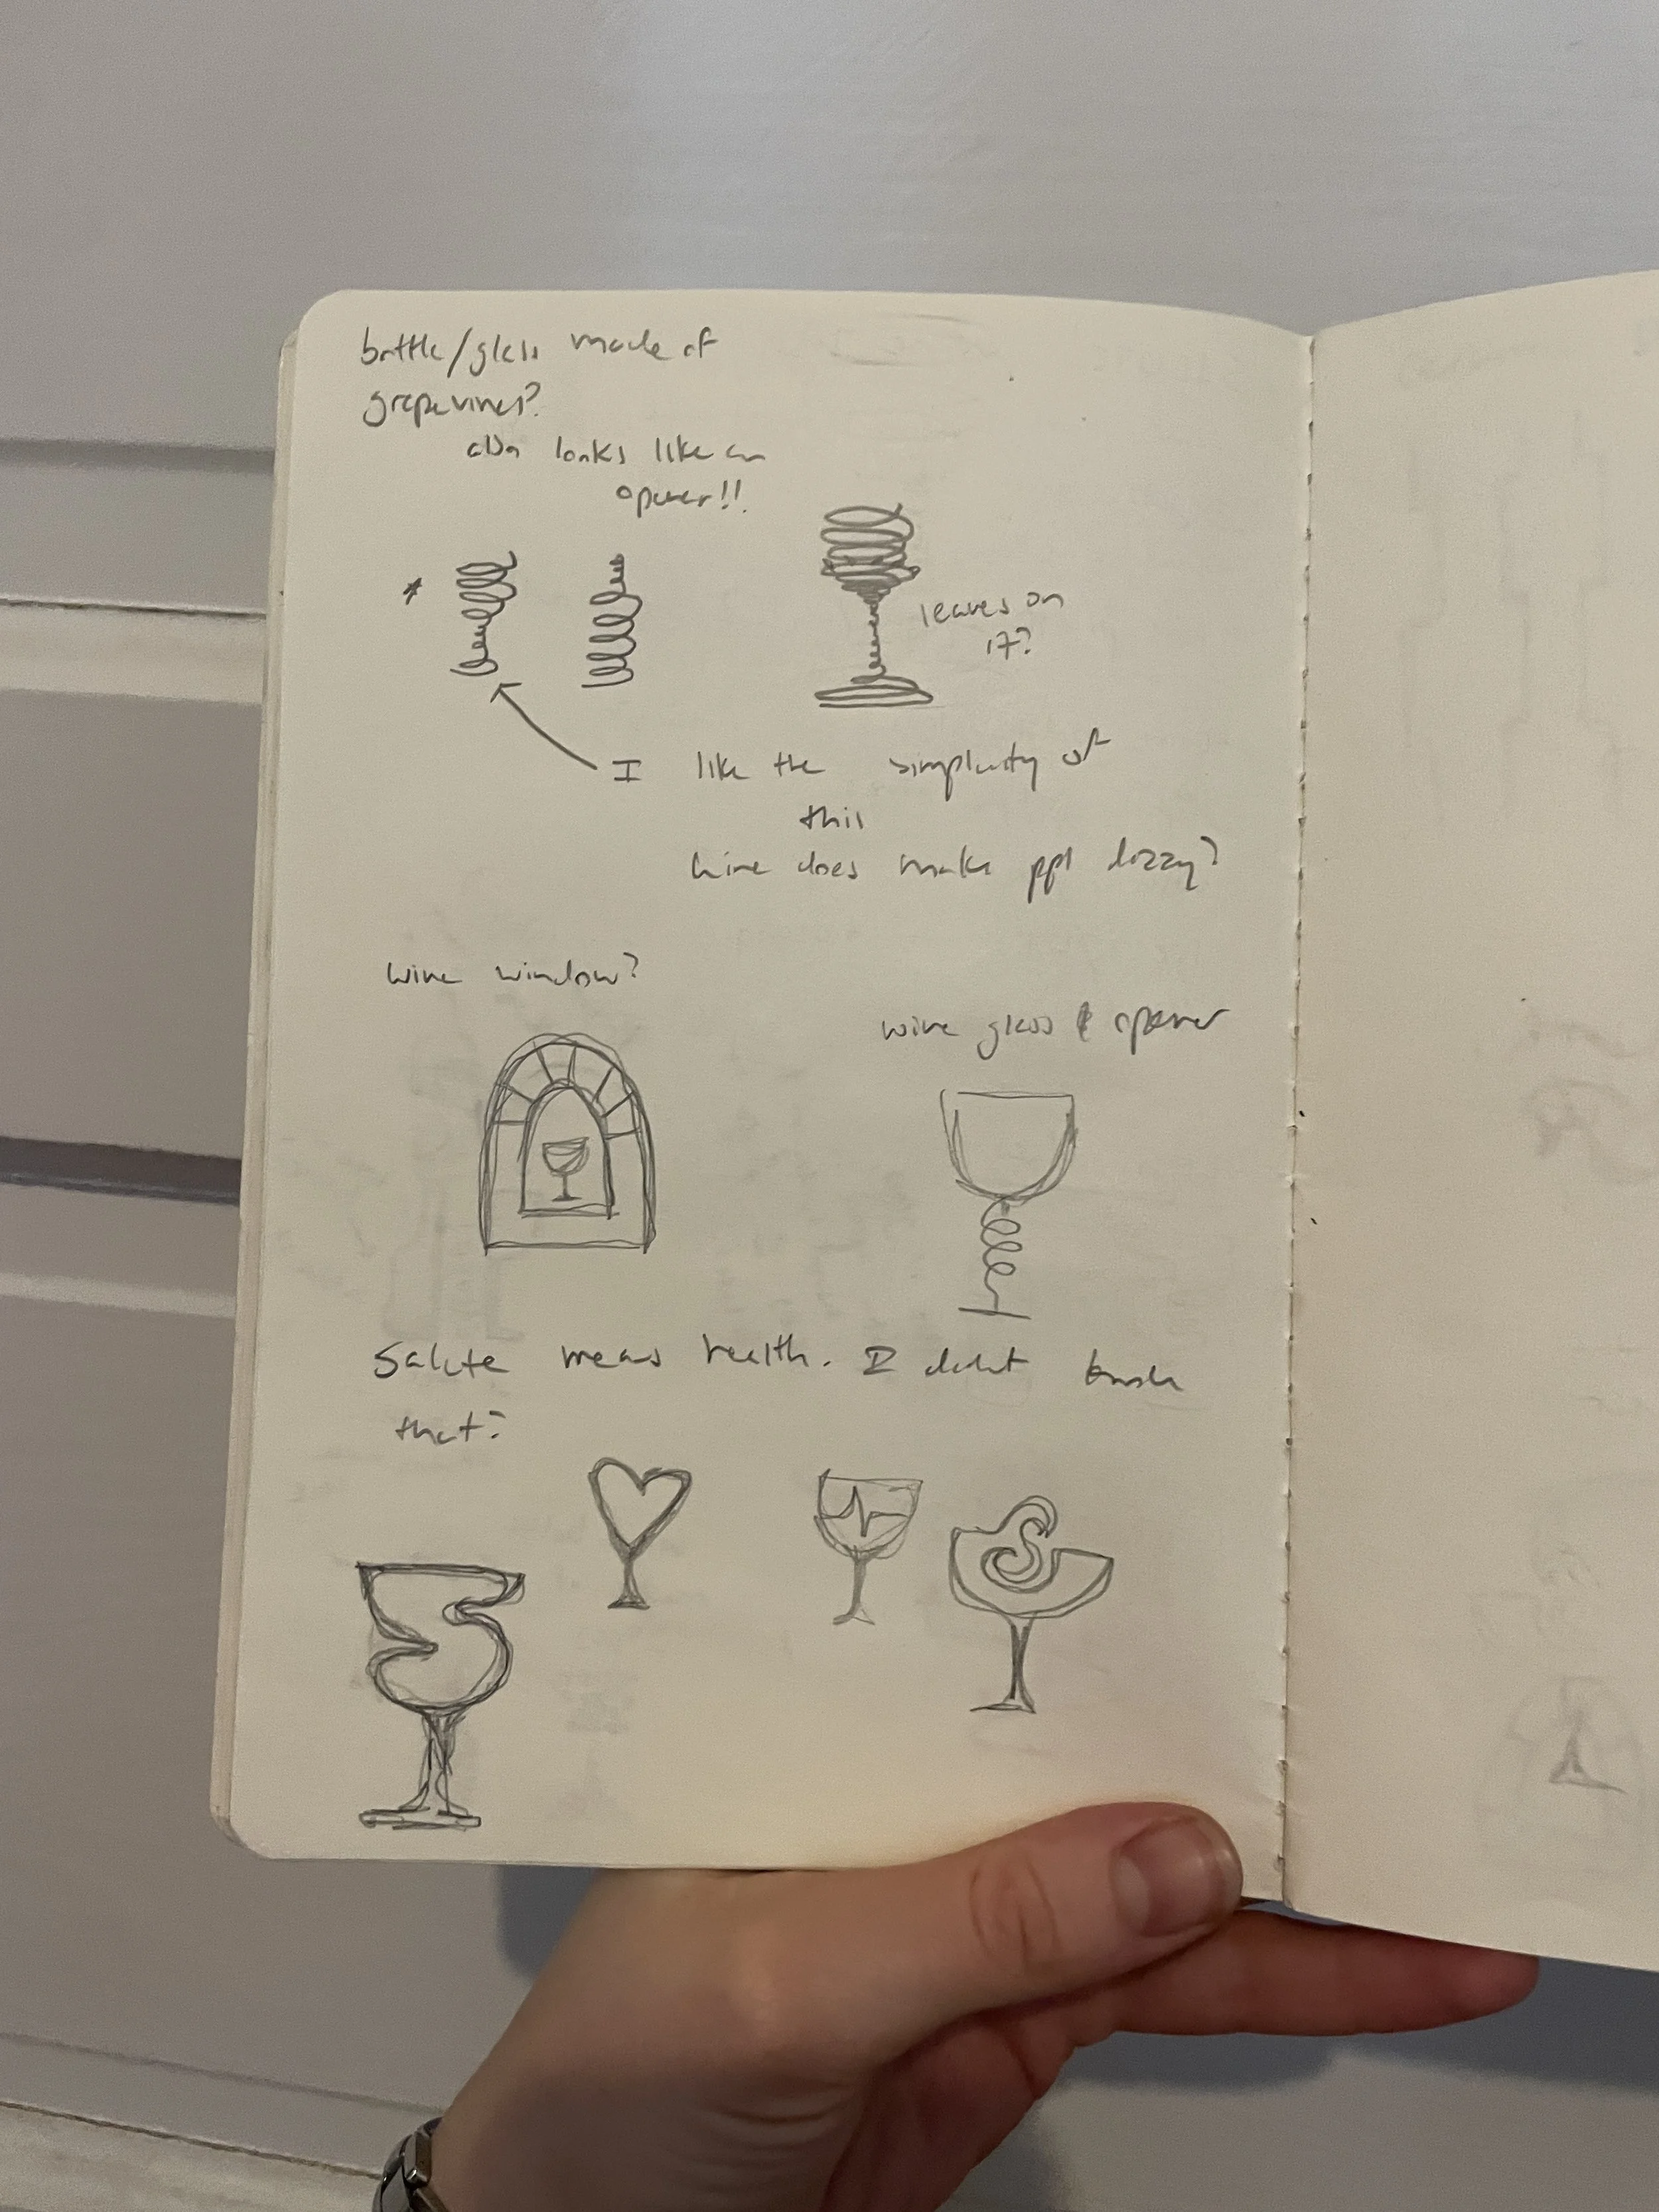 bottle/glass made of
grapevines?
also looks like an
opener!!
*
leaves on
it?
I like the simplicity of
this
wine does make ppl dizzy?
wine window?
wine glass & opener
Salute means health. I didnt know
that?
S